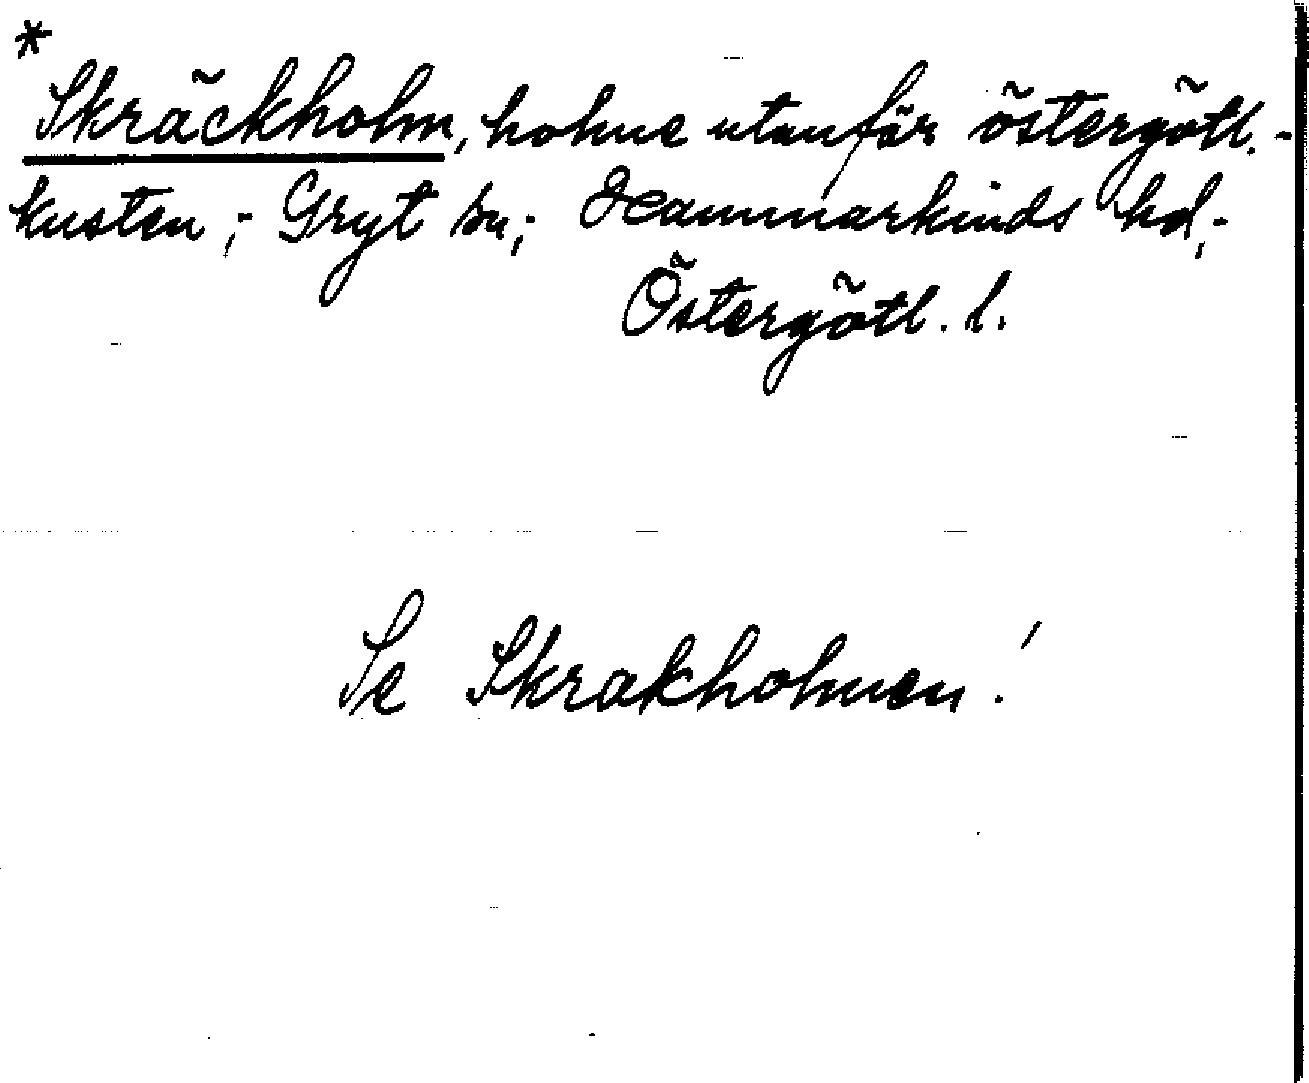 *
Skräckholm, holme utanför östergötl.-
kusten,; Gryt sn,; Hammarkinds hd,-
Östergötl. l.
Se Skrakholmen!